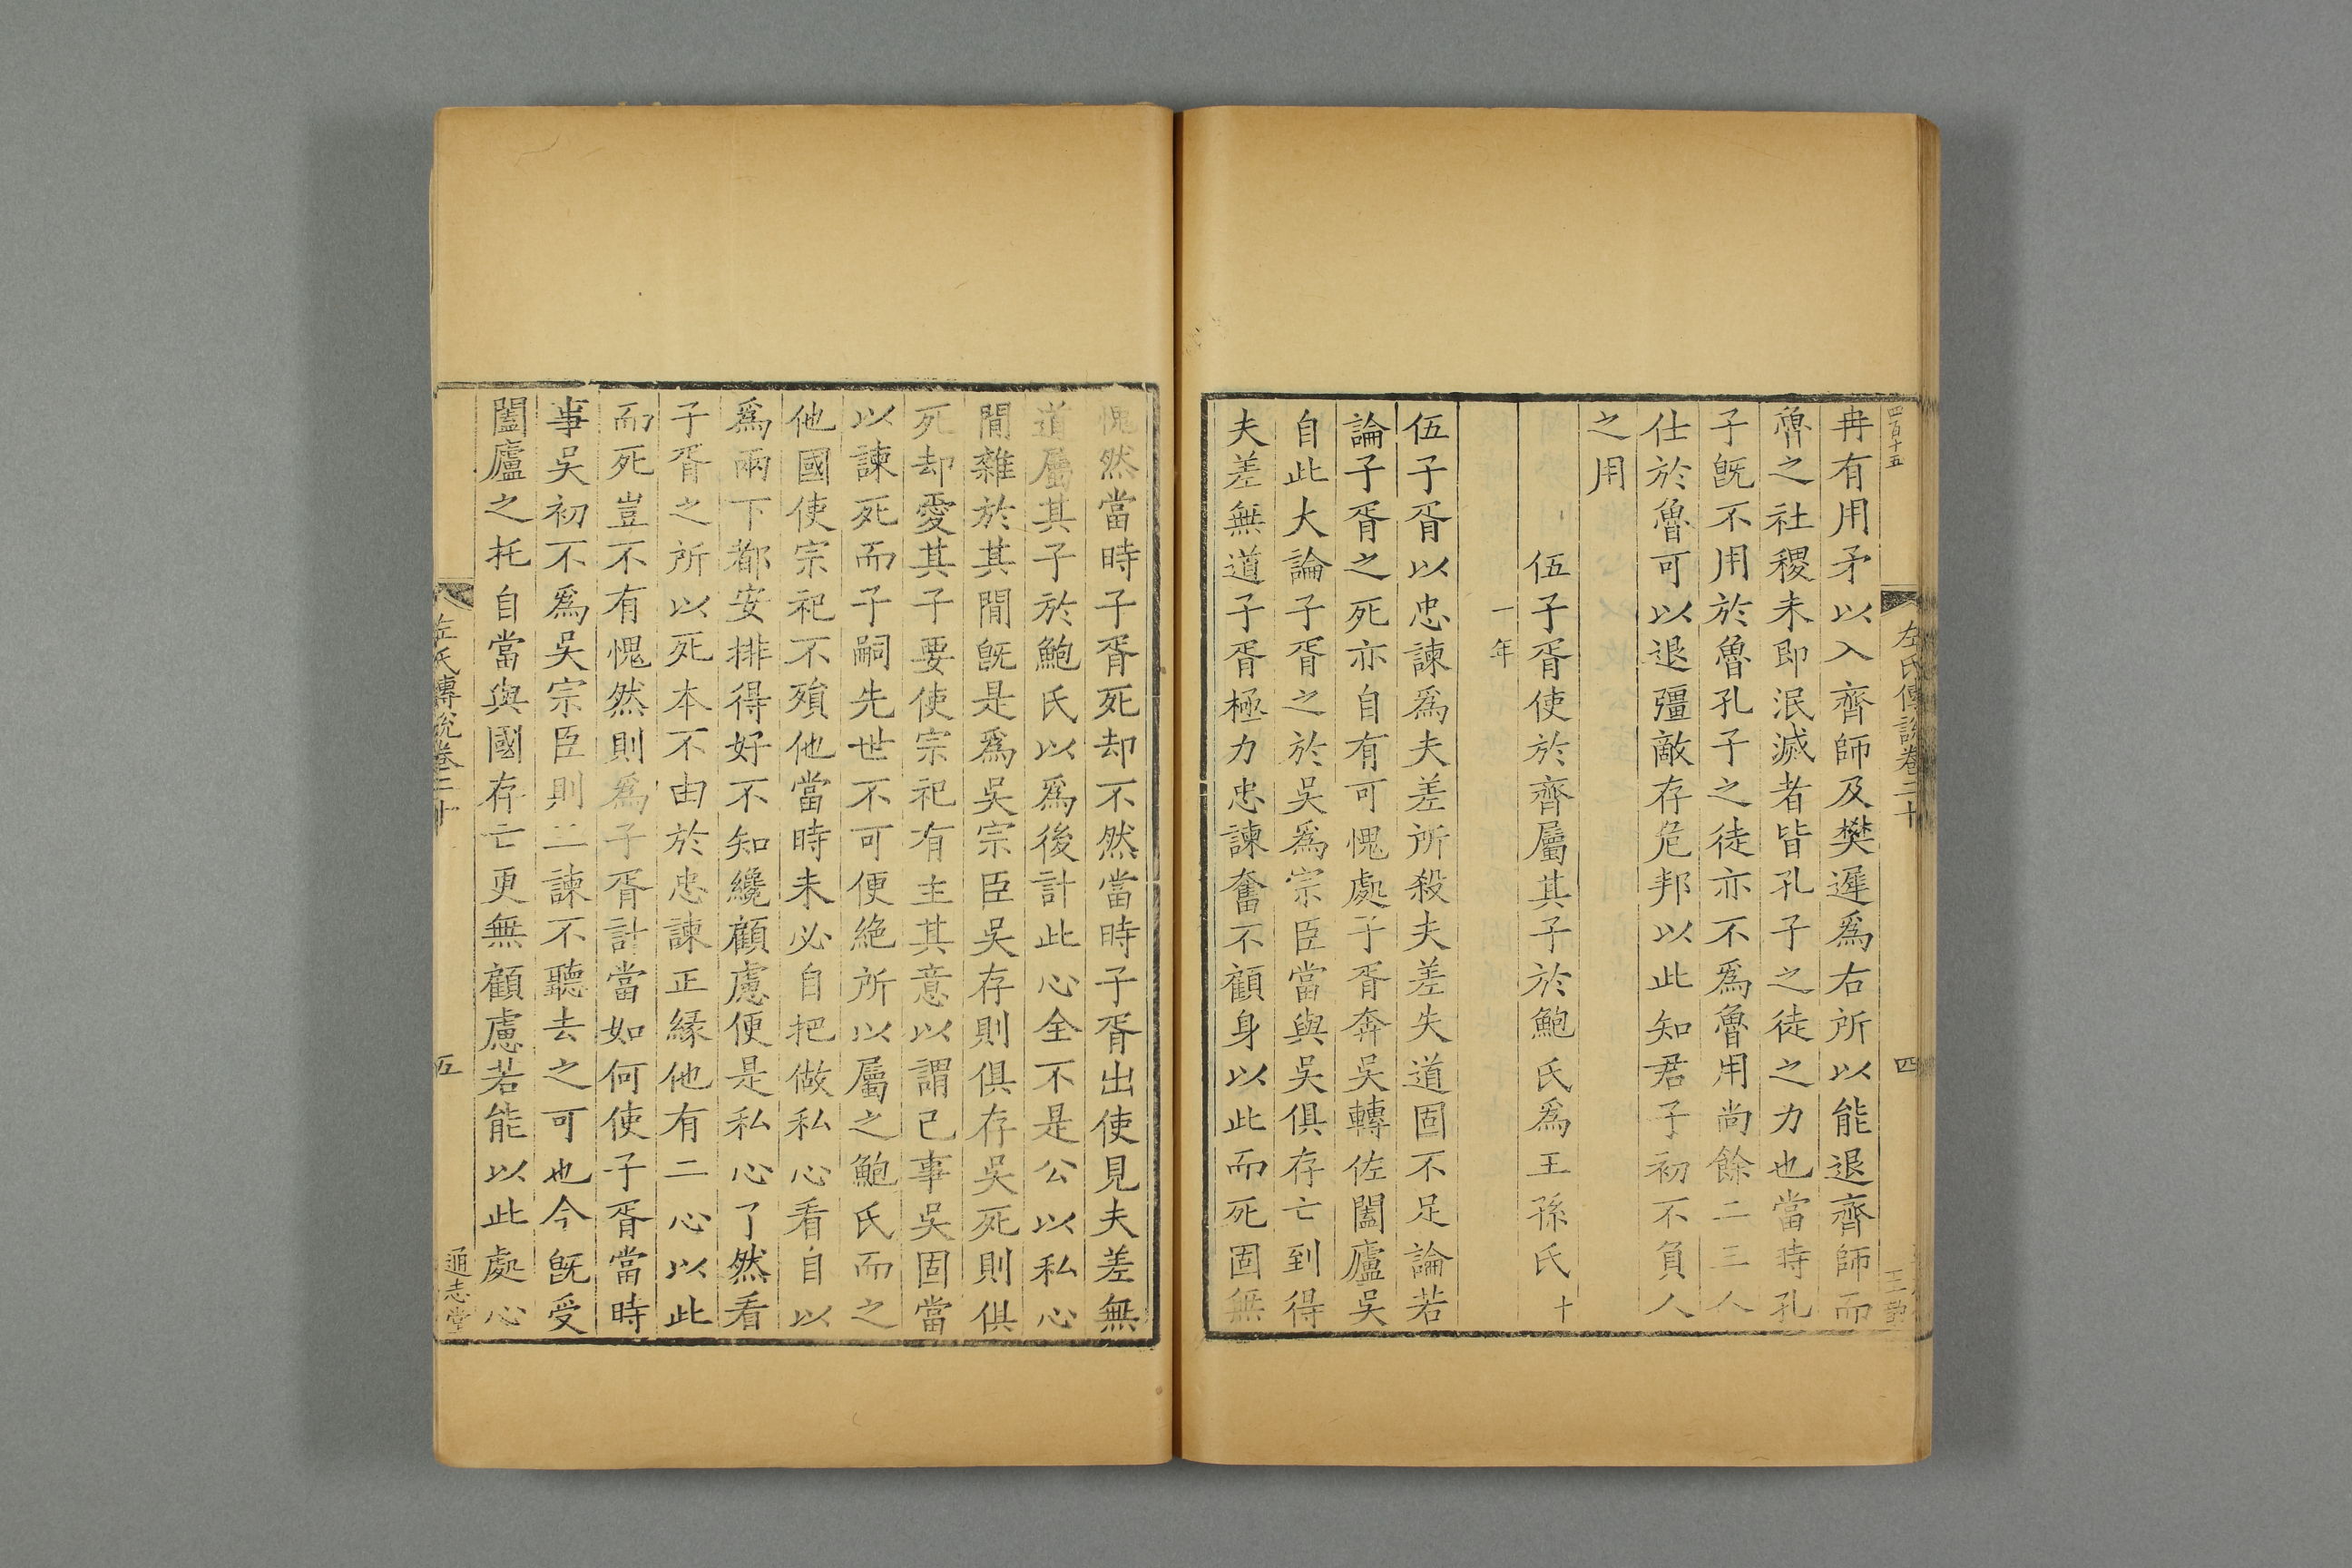 四百十五
左氏傳說卷二十
四
冉有用矛以入齊師及樊遲爲右所以能退齊師而
魯之社稷未即泯滅者皆孔子之徒之力也當時孔
子旣不用於魯孔子之徒亦不爲魯用尚餘二三人
仕於魯可以退彊敵存危邦以此知君子初不負人
之用
伍子胥使於齊屬其子於鮑氏爲王孫氏十
一年
伍子胥以忠諫爲夫差所殺夫差失道固不足論若
論子胥之死亦自有可愧處子胥奔吳轉佐闔廬吳
自此大論子胥之於吳爲宗臣當與吳俱存亡到得
夫差無道子胥極力忠諫奮不顧身以此而死固無
愧然當時子胥死却不然當時子胥出使見夫差無
道屬其子於鮑氏以爲後計此心全不是公以私心
閒雜於其閒旣是爲吳宗臣吳存則俱存吳死則俱
死却愛其子要使宗祀有主其意以謂己事吳固當
以諫死而子嗣先世不可便絶所以屬之鮑氏而之
他國使宗祀不殞他當時未必自把做私心看自以
爲兩下都安排得好不知纔顧慮便是私心了然看
子胥之所以死本不由於忠諫正緣他有二心以此
而死豈不有愧然則爲子胥計當如何使子胥當時
事吳初不爲吳宗臣則二諫不聽去之可也今旣受
闔廬之托自當與國存亡更無顧慮若能以此處心
左氏傳說卷二十
五
通志堂